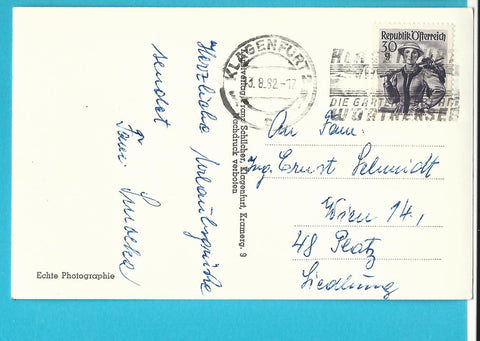 Herzliche Urlaubsgrüße
sendet
Fam.
Echte Photographie
Lichtverlag Franz Schilcher, Klagenfurt, Kramerg. 9
Nachdruck verboten
KLAGENFURT 2
8.52-17
Republik Österreich
30 g
DIE GARTENSTADT AM
WÖRTHERSEE
An Fam.
Ing. Ernst Schmidt
Wien 14.,
48 Platz
Siedlung